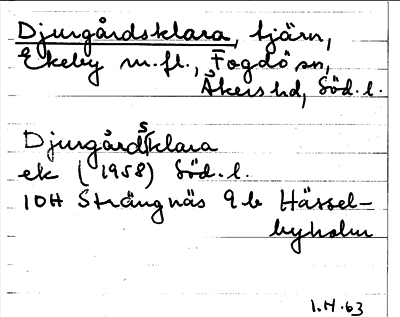 Djurgårdsklara, tjärn,
Ekeby m.fl., Fogdö sn,
Åkers hd, Söd. l.
Djurgårdsklara
ek (1958) Söd. l.
10H Strängnäs 9 b Hässel-
byholm
1.H.63